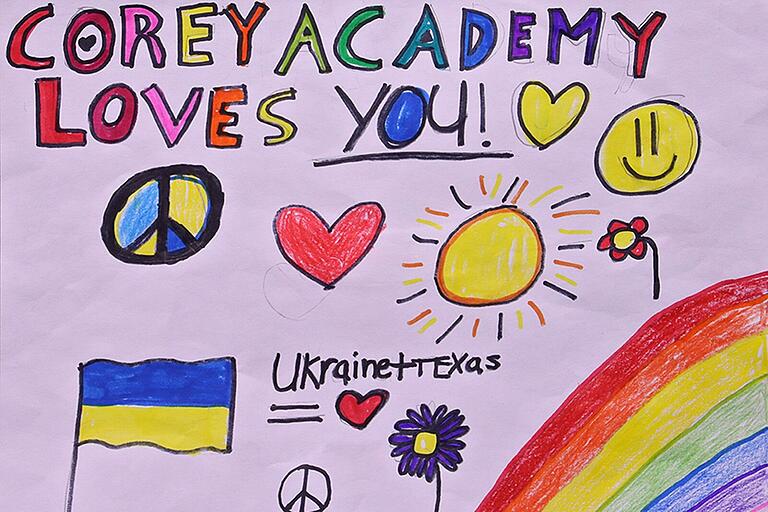 COREY ACADEMY
LOVES YOU!
UKraine+TEXas
=